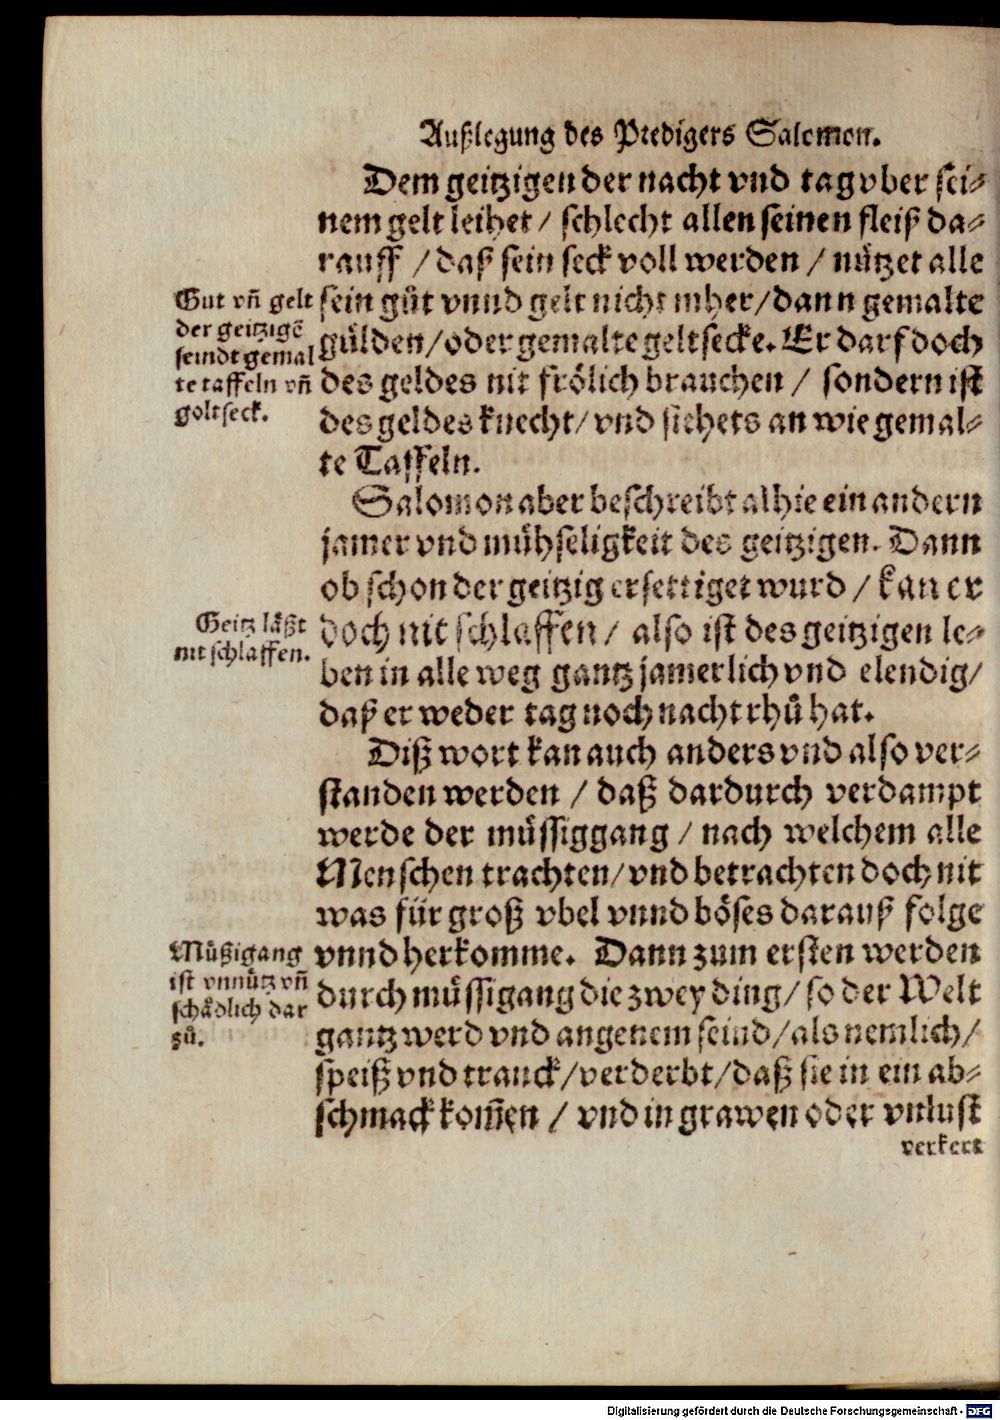 Außlegung des Predigers Salomon.
Dem geitzigen der nacht vnd tag vber sei⸗
nem gelt leihet / schlecht allen seinen fleiß da⸗
rauff / daß sein seck voll werden / nützet alle
sein gůt vnnd gelt nicht mher / dann gemalte
gülden / oder gemalte geltsecke. Er darf doch
des geldes nit frölich brauchen / sondern ist
des geldes knecht / vnd sihets an wie gemal⸗
te Taffeln.
Gut vñ gelt
der geitzigẽ
seindt gemal
te taffeln vñ
goltseck.
Salomon aber beschreibt alhie ein andern
jamer vnd mühseligkeit des geitzigen. Dann
ob schon der geitzig ersettiget wurd / kan er
doch nit schlaffen / also ist des geitzigen le⸗
ben in alle weg gantz jamerlich vnd elendig /
daß er weder tag noch nacht rhů hat.
Geitz läßt
nit schlaffen.
Diß wort kan auch anders vnd also ver⸗
standen werden / daß dardurch verdampt
werde der müssiggang / nach welchem alle
Menschen trachten / vnd betrachten doch nit
was für groß vbel vnnd böses darauß folge
vnnd herkomme. Dann zum ersten werden
durch müssigang die zwey ding / so der Welt
gantz werd vnd angenem seind / als nemlich /
speiß vnd tranck / verderbt / daß sie in ein ab⸗
schmack kom̃en / vnd in grawen oder vnlust
Müßigang
ist vnnütz vñ
schädlich dar
zů.
verkert
Digitalisierung gefördert durch die Deutsche Forschungsgemeinschaft - DFG